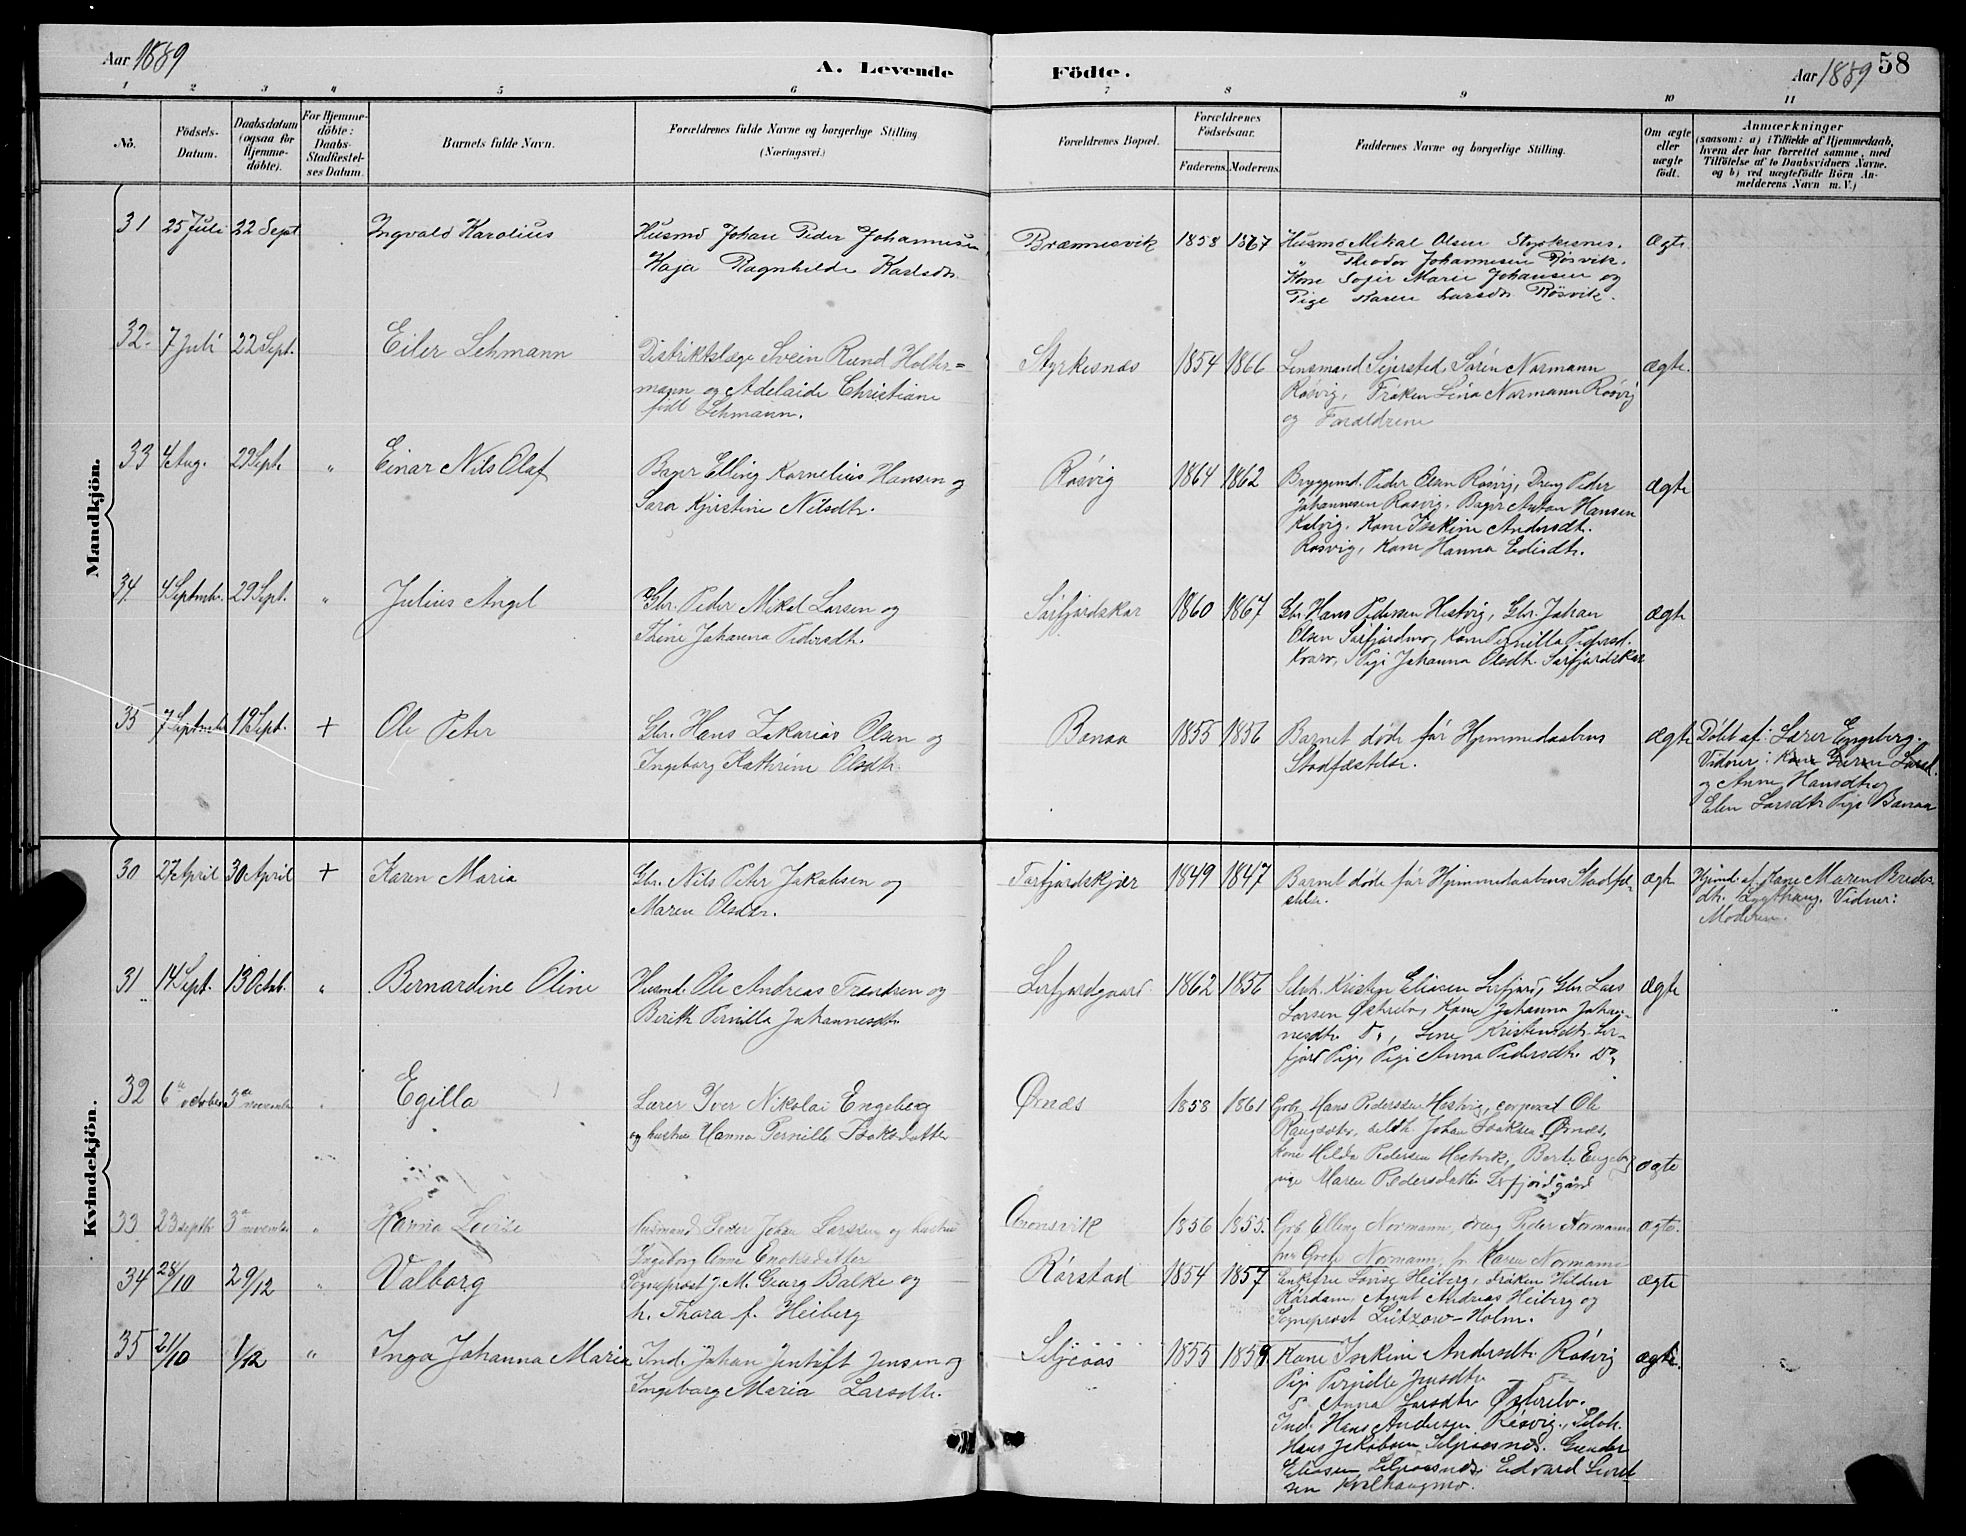 Aar 1889
A. Levende
Födte.
Aar 1889
58
1 2 3 4 5 6 7 8 9 10 11
No.
Födsels-
Datum.
Daabsdatum
(ogsaa for
Hjemme-
döbte).
For Hjemme-
döbte:
Daabs-
Stadfæstel-
ses Datum.
Barnets fulde Navn.
Forældrenes fulde Navne og borgerlige Stilling
(Næringsvei.)
Forældrenes Bopæl.
Forældrenes
Födselsaar.
Faderens. Moderens.
Faddernes Navne og borgerlige Stilling.
Om ægte
eller
uægte
födt.
Anmærkninger
(saasom: a) i Tilfælde af Hjemmedaab,
hvem der har forrettet samme, med
Tilföielse af to Daabsvidners Navne.
og b) ved uægtefödte Börn An-
melderens Navn m. V.)
Mandkjön.
31 25 Juli 22 Sept Ingvald Karolius
Husmd Johan Peder Johannesen
Haja Ragnhilde Karlsdtr
Bræmnesvik 1858 1867
Husmd Mikal Olsen Styrkesnes.
" Theodor Johannesen Røsvik.
Kone Sofie Marie Johansen og
Pige Karen Larsdtr Røsvik.
Ægte
32. 7 Juli 22 Sept. Eiler Lehmann
Distriktslæge Svein Rund Holter=
mann og Adelaide Christiane
født Lehmann.
Styrkesnæs 1854 1866
Lensmand Sejersted, Sören Normann
Røsvig, Frøken Lina Normann Røsvig
og Forældrene
ægte.
33 4 Aug. 29 Sept. " Einar Nils Olaf
Bager Elling Kornelius Hansen og
Sara Kjirstine Nilsdtr.
Røsvig 1864 1862
Bryggemd. Peder Olsen Røsvig, Dreng Peder
Johannesen Røsvig, Bager Anton Hansen
Kalvig. Kone Isakine Andersdtr.
Røsvig, Kone Hanna
ægte
34 4 Septmbr. 29 Sept. " Julius Angel
Gbr. Peder Mikal Larsen og
Thine Johanna Pedersdtr.
Sørfjordskar 1860 1867
Gbr. Hans Pedersen Hestvig, Gbr. Johan
Olsen Sørfjordmo, Kone Pernilla Pedersd.
Kvarv, Pige Johanna Olsdtr. Sørfjordskar
ægte
35 7 Septmbr 19 Sept. + Ole Peter
Gbr. Hans Zakarias Olsen og
Ingeborg Kathrine Olsdtr.
Bonaa 1855 1856
Barnet døde før Hjemmedaabens
Stadfæstelse.
ægte
Døbt af: Lærer Engeberg.
Vidner:
og Anne Hansdtr og
Elen Larsdtr Pige Bonaa
Kvindekjön.
30 27 April 30 April + Karen Maria
Gbr. Nils Peter Jakobsen og
Maren Olsdtr.
1849 1847
Barnet døde før Hjemmedaabens Stadfæ-
stelse.
ægte
Hjemd. af Kone Maren
dtr. Vidner:
Moderen.
31 14 Sept. 13 Octb. " Bernardine Oline
Husmd. Ole Andreas og
Berith Pernilla Johannesdtr.
Lerfjordgaard 1862 1856
Selvh. Kristen Eliasen Lerfjord, Gbr. Lars
Larsen Østrelv, Kone Johanna Johan-
nesdtr. Do, Line Kristensdtr. Ler-
fjord Pige, Pige Anna Pedersdtr. Do
ægte
32 6 october 3 november " Egilla
Lærer Iver Nikolai Engeberg
og hustru Hanna Pernille Isaksdatter
Ørnæs 1858 1861
Grb. Hans Pederssen Hestvig, corporal Ole
selvh. Johan Isaksen Ørnæs,
kone Hilda Pedersen Hestvik, Berte Engeberg
pige Maren Pedersdatter Lerfjordgård
ægte
33 23 septbr 3 november " Hanna Lovise
husmand Peder Johan Larssen og hustru
Ingeborg Anna Enoksdatter
1856 1855.
Grb. Elling Normann, dreng Peder Normann
Grete Normann, Karen Normann
ægte.
34 28/10 29/12 " Valborg
Sogneprest J. M. Georg Balke og
h. Thora f. Heiberg
Rørstad 1854 1857
Enkefru Lovise Heiberg, Frøken Hildur
Rørdam, Agent Andreas Heiberg og
Sogneprest Lützow-Holm.
ægte
35 21/10 1/12 " Inga Johanna Maria
Ind. Johan Jentoft Jensen og
Ingeborg Maria Larsdtr.
1855 1859
Kone Isakine Andersdtr. Røsvig
Pige Pernille Jensdtr
Do Anna Larsdtr Østrelv.
Ind. Hans Andersen Røsvig, Selvh.
Hans Jakobsen Gunder
Eliasen Edvard
sen Kvalhaugmo.
ægte.